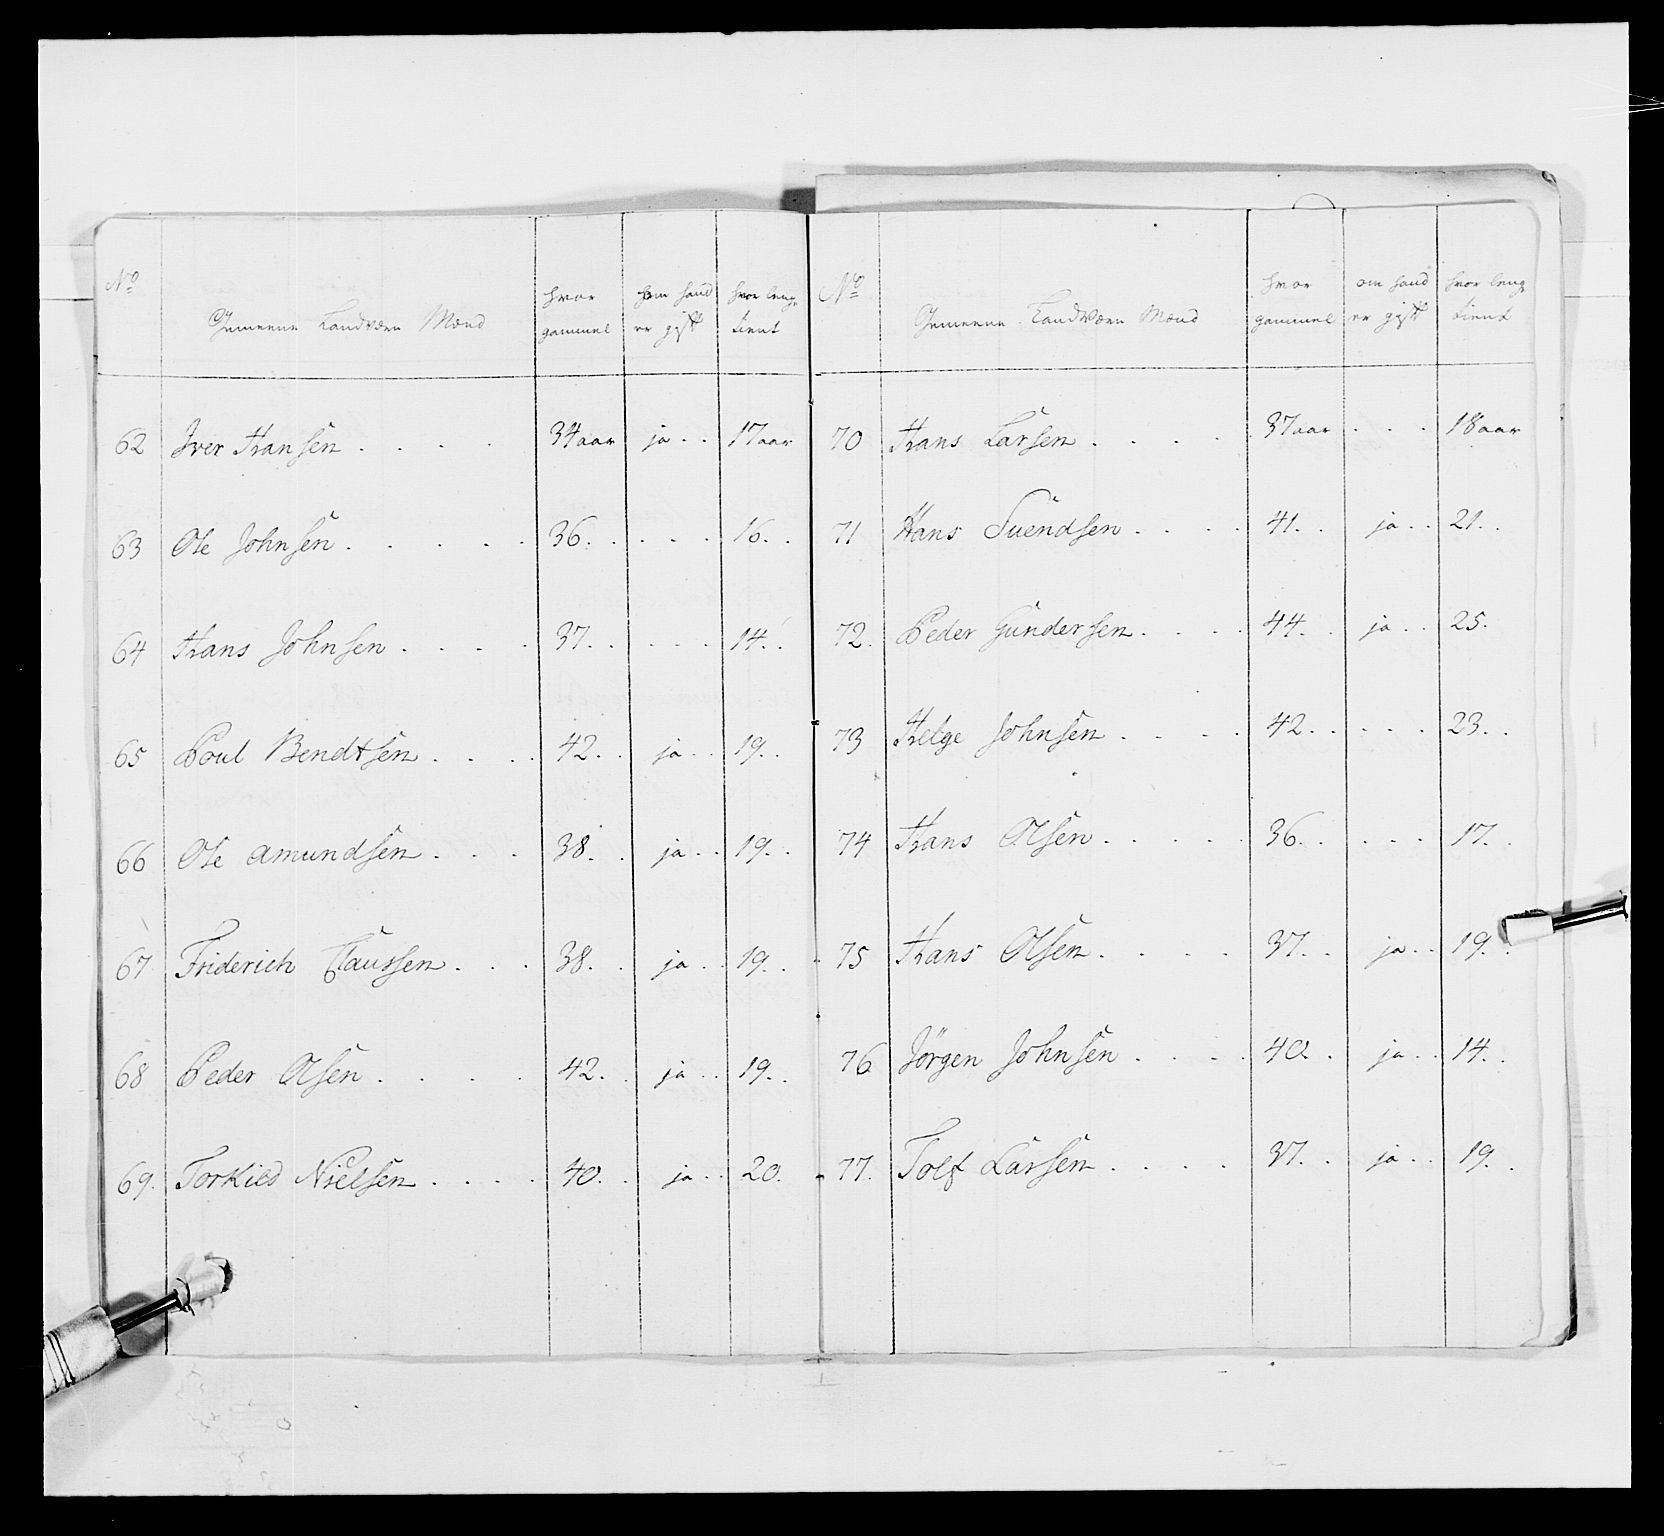 No Gemeene Landværn Mænd hvor gammel om hand er gift hvor lenge tient
62 Iver Hansen . . . . 34 aar ja . . 17 aar
63 Ole Johnsen . . . . . 36. . . . . 16. .
64 Hans Johnsen . . . . 37. . . . . 14. .
65 Poul Bendtsen . . . . 42. . ja . . 19. .
66 Ole Amundsen . . . 38. . ja . . 19. .
67 Friderich Claussen . . . 38. . ja . . 19. .
68 Peder Olsen . . . . 42. . ja . . 19. .
69. Torkild Nielsen . . . . 40. . ja . . 20. .
No Gemeene Landværn Mænd hvor gammel om hand er gift hvor lenge tient
70 Hans Larsen . . . . 37 aar . . . 18 aar
71 Hans Suendsen . . . . 41. . ja . . 21. .
72. Peder Gundersen . . . . 44. . ja . . 25.
73 Helge Johnsen . . . . 42. . . . . 23. .
74 Hans Olsen . . . . . 36. . . . . 17. .
75 Hans Olsen . . . . 37. . ja . . 19. .
76 Jörgen Johnsen . . . . 40. . ja . . 14. .
77. Tolf Larsen . . . . 37. . ja . . 19. .